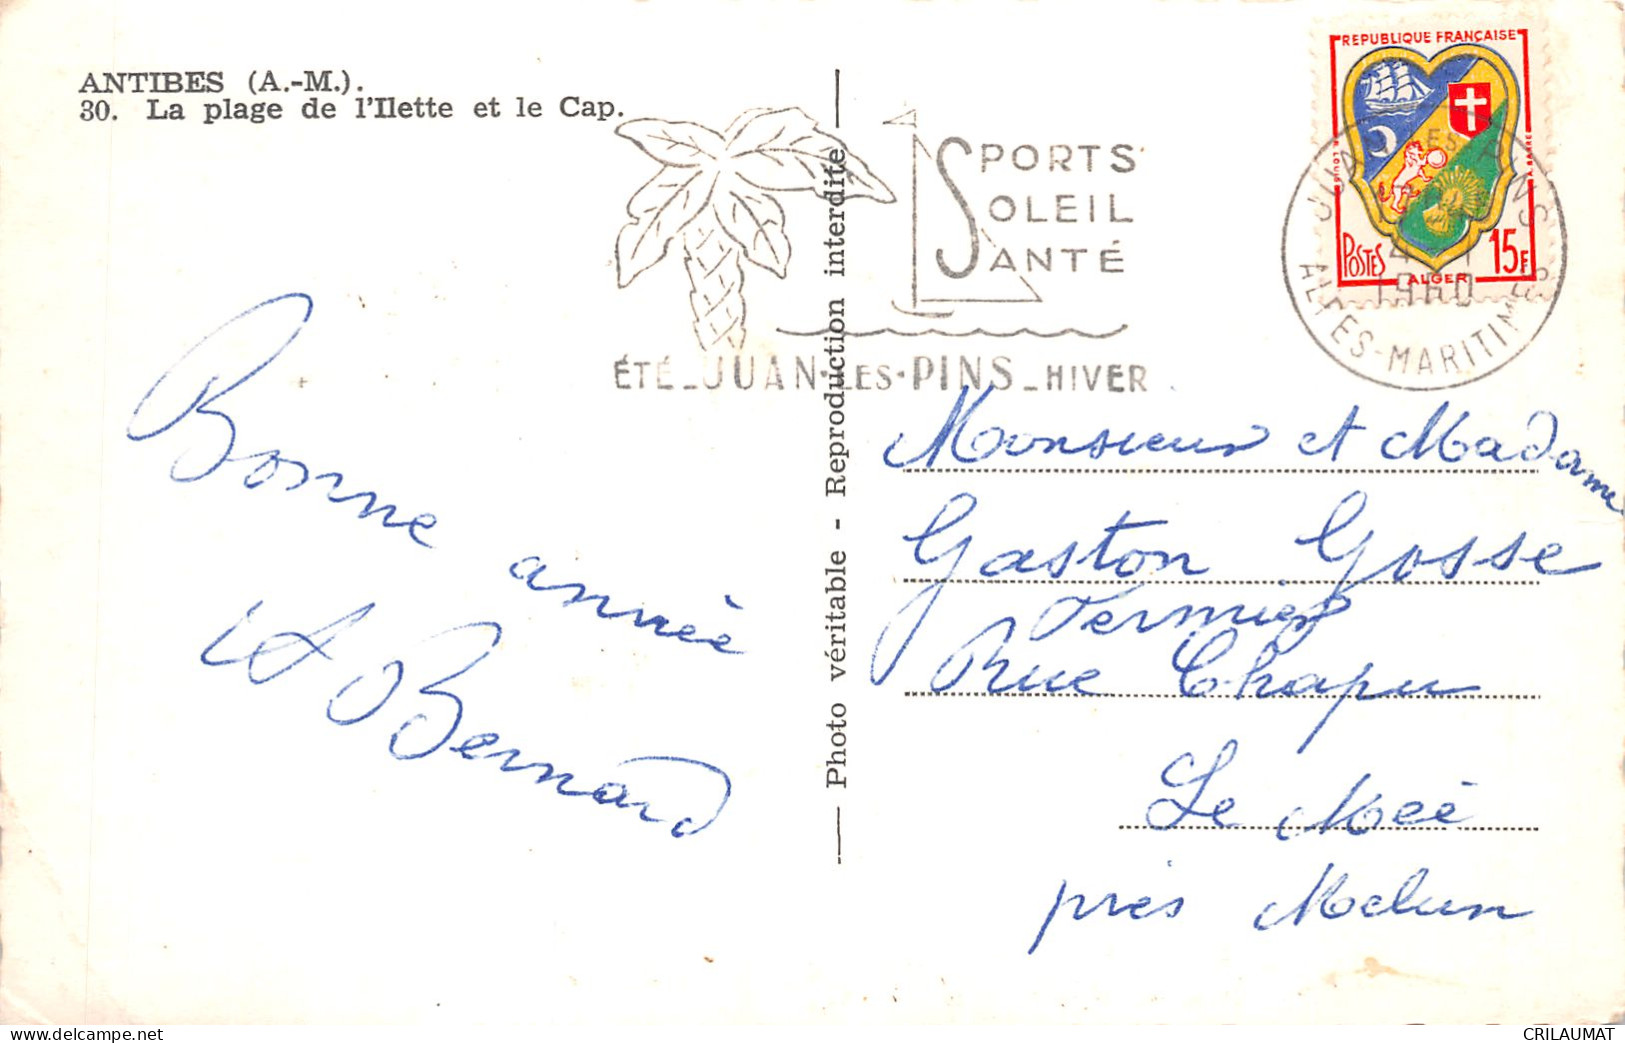 ANTIBES (A.-M.).
30. La plage de l'Ilette et le Cap.
SPORTS
SOLEIL
SANTÉ
ÉTÉ _ JUAN•LES•PINS _ HIVER
REPUBLIQUE FRANÇAISE
POSTES
15F
ALGER
JUAN LES PINS
1960
ALPES-MARITIMES
Photo véritable - Reproduction interdite
Bonne année
Bernard
Monsieur et Madame
Gaston Gosse
Fermier
Rue Chapu
Le Méé
près Melun
delcampe.net
CRILAUMAT